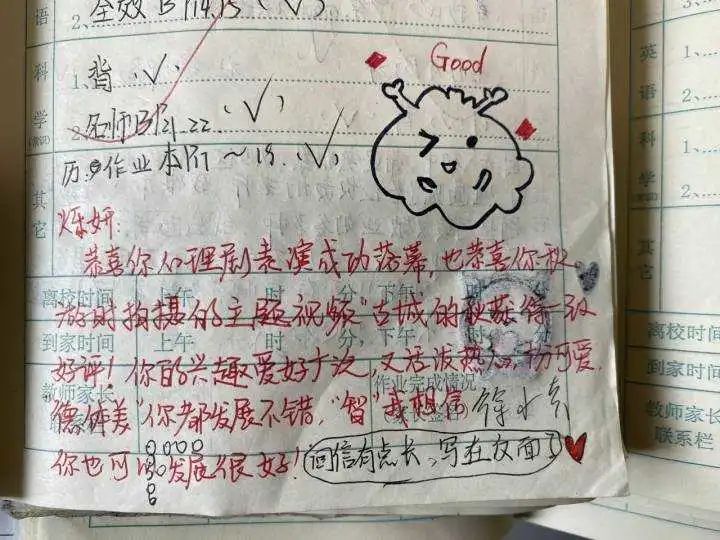 语 2、全效 B P14.15 (√)
Good
科 1、背 (√)
学 2、名师B P21.22 (√)
(常识)
历、作业本P1～19 (√)
其
它
烁妍:
恭喜你心理剧表演成功落幕,也恭喜你秋
离校时间 上午 时 分,下午 时 分
游时拍摄的主题视频“古城的秋获得一致
到家时间 上午 时 分,下午 时 分
好评!你的兴趣爱好广泛,又活泼热情,可爱.
教师家长
作业完成情况
德体美”你都发展不错,“智”我想信
你也可以发展很好!
回信有点长,写在反面了
英 1、
语 2、
科 1、
学 2、
(常识)
其
它
离校时间
到家时间
教师家长
联系栏